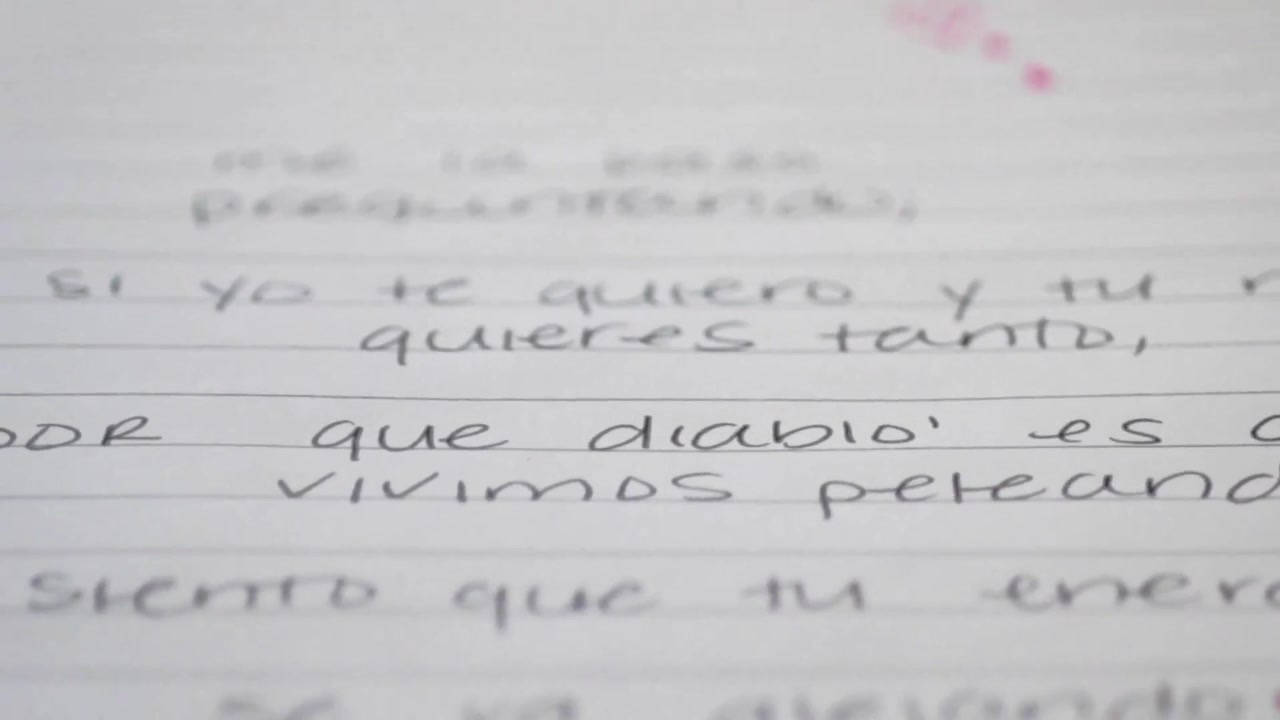 preguntando,
si yo te quiero y tu
quieres tanto,
que diablo' es
vivimos peleand
siento que tu ener
se va alejando